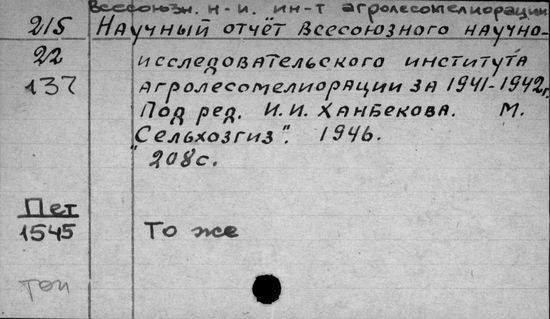 Всесоюзн. н.-и. ин-т агролесомелиорации
215 Научный отчёт Всесоюзного научно-
22 исследовательского института
137 агролесомелиорации за 1941-1942г.
Под ред. И.И. Ханбекова. М.
"Сельхозгиз". 1946.
208с.
Пет
1545 То же